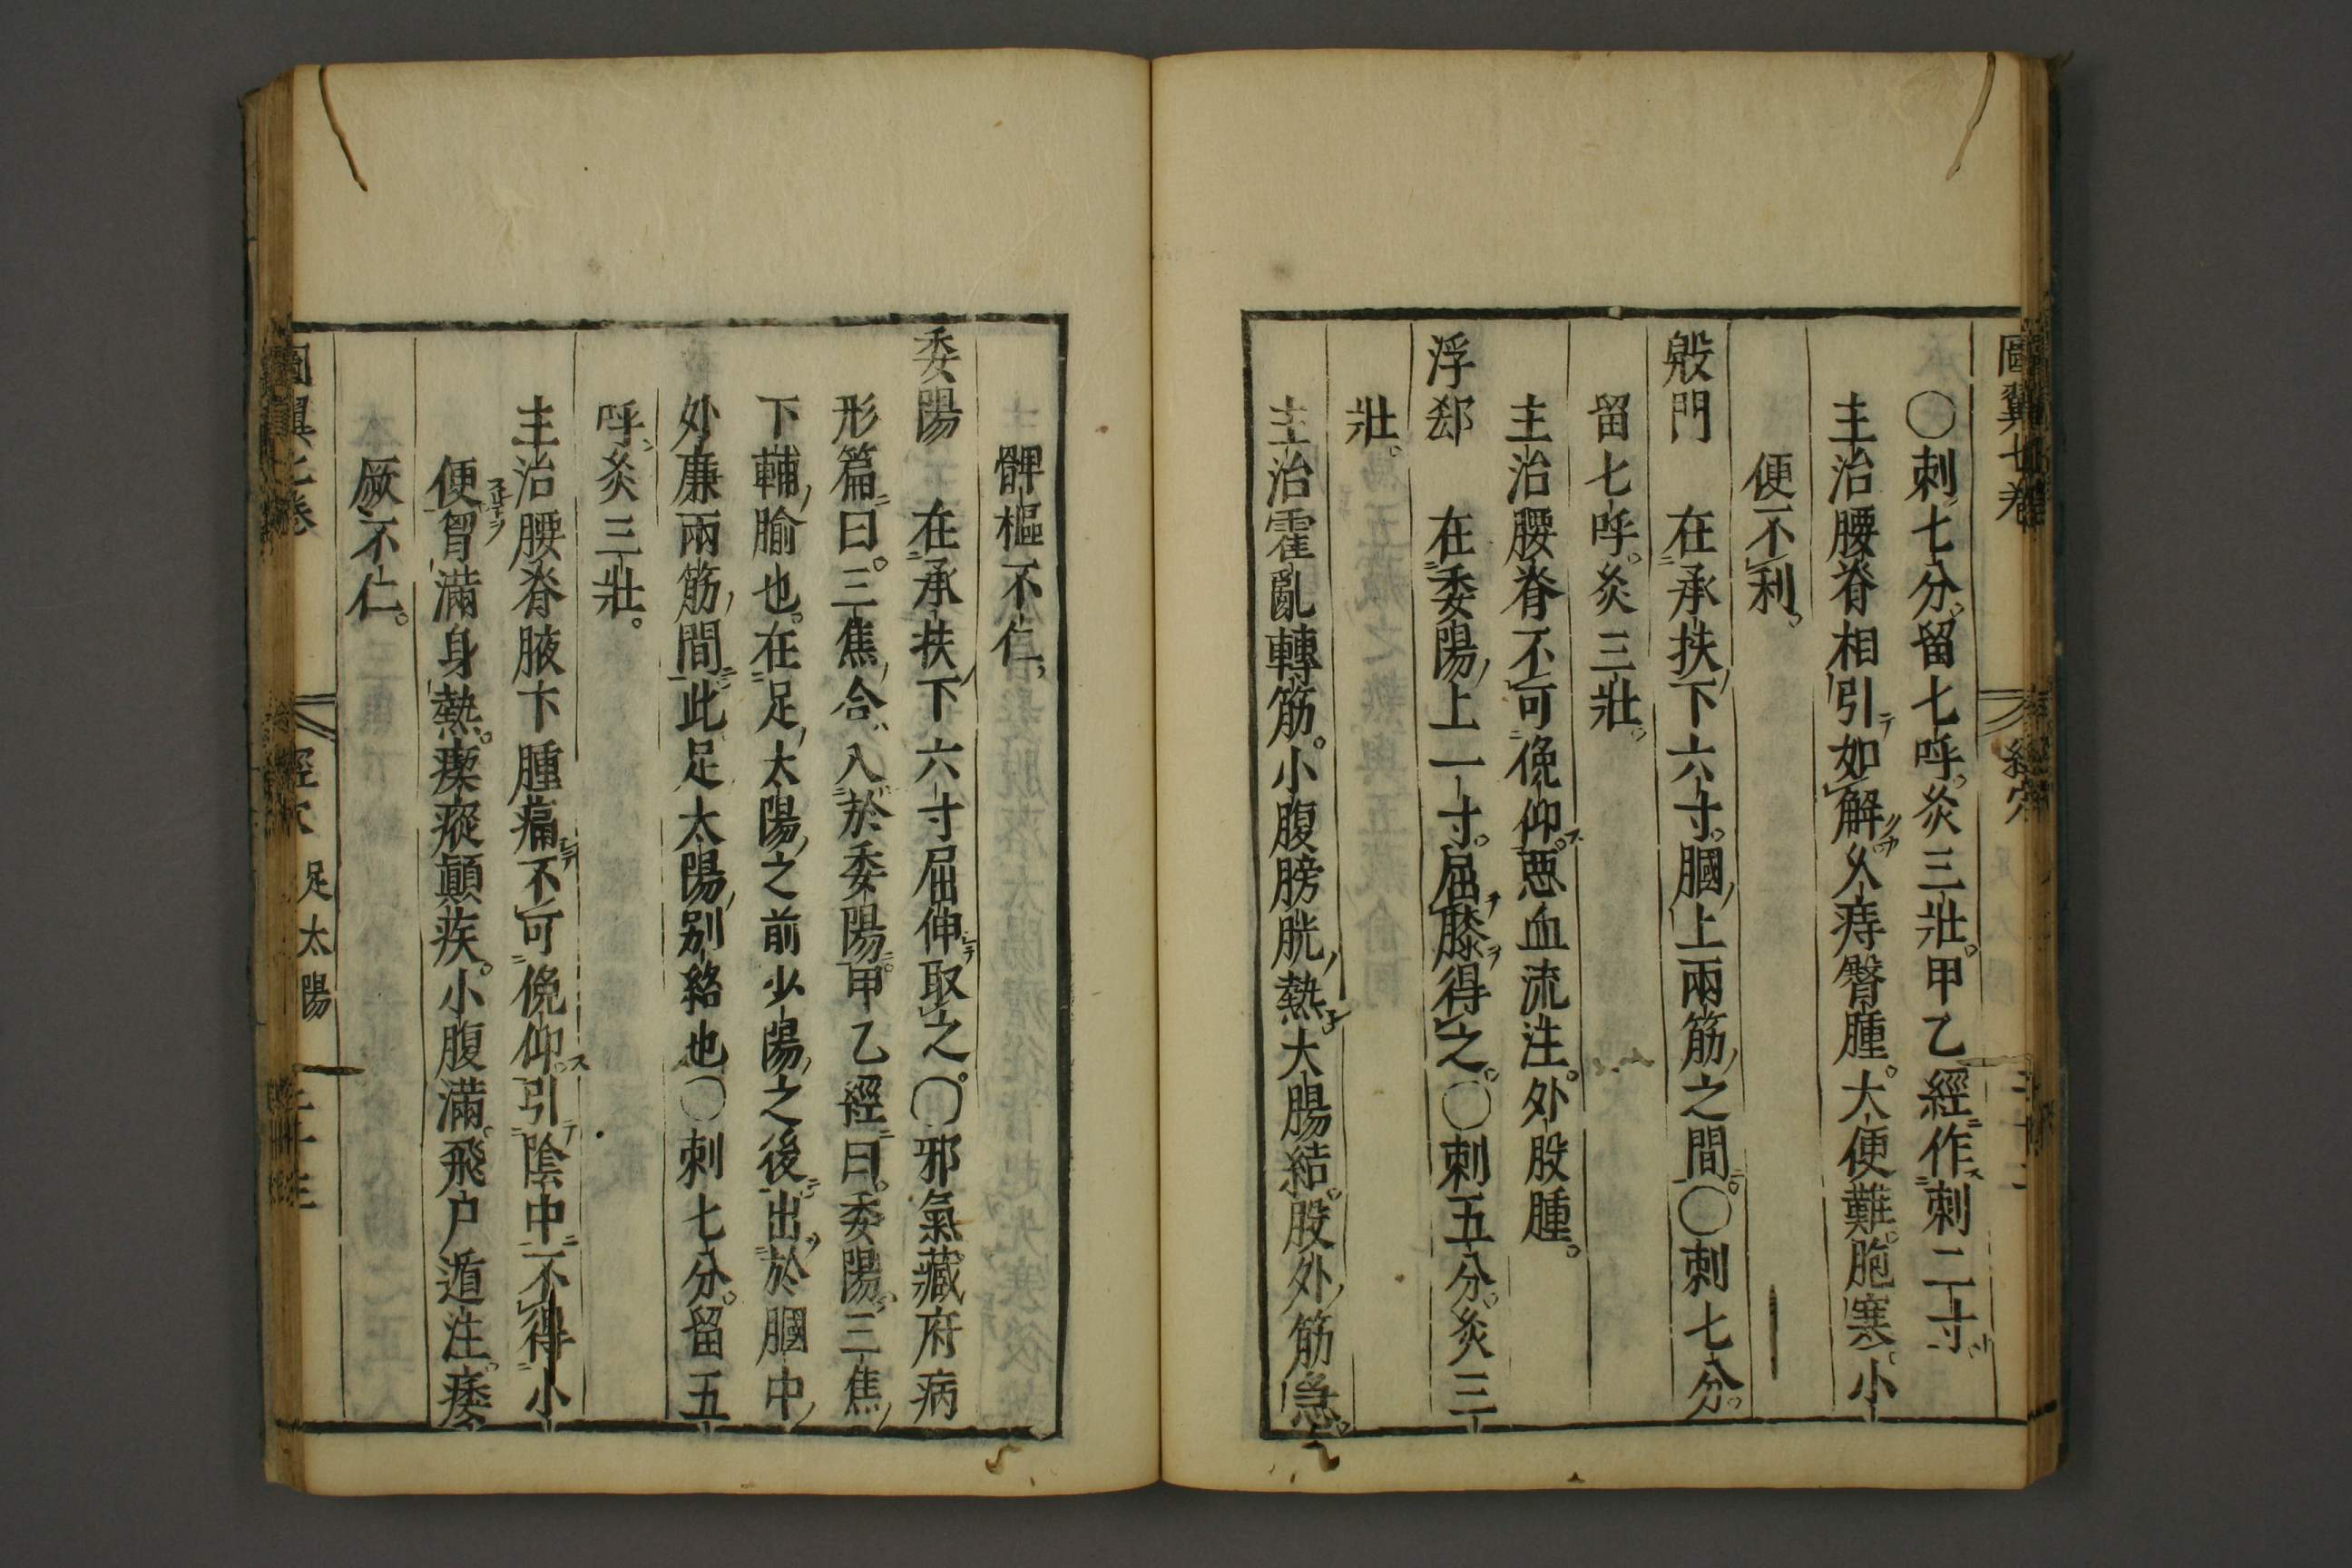 圖翼七卷 經穴
○刺七分。留七呼。灸三壯。甲乙經作刺二寸。
主治腰脊相引如解久痔臀腫。大便難。胞寒。小
便不利。
殷門 在承扶下六寸。膕上兩筋之間。○刺七分。
留七呼。灸三壯。
主治腰脊不可俛仰。惡血流注。外股腫。
浮郄 在委陽上一寸。屈膝得之。○刺五分。灸三
壯。
主治霍亂轉筋。小腹膀胱熱大腸結。股外筋急。
髀樞不仁。
委陽 在承扶下六寸屈伸取之。○邪氣藏府病
形篇曰。三焦合入於委陽。甲乙經曰。委陽三焦
下輔腧也。在足太陽之前少陽之後出於膕中
外廉兩筋間此足太陽別絡也○刺七分。留五
呼灸三壯。
主治腰脊腋下腫痛不可俛仰。引陰中不得小
便胷滿身熱。瘈瘲顛疾。小腹滿。飛尸遁注。痿
厥不仁。
圖翼七卷 經穴 足太陽